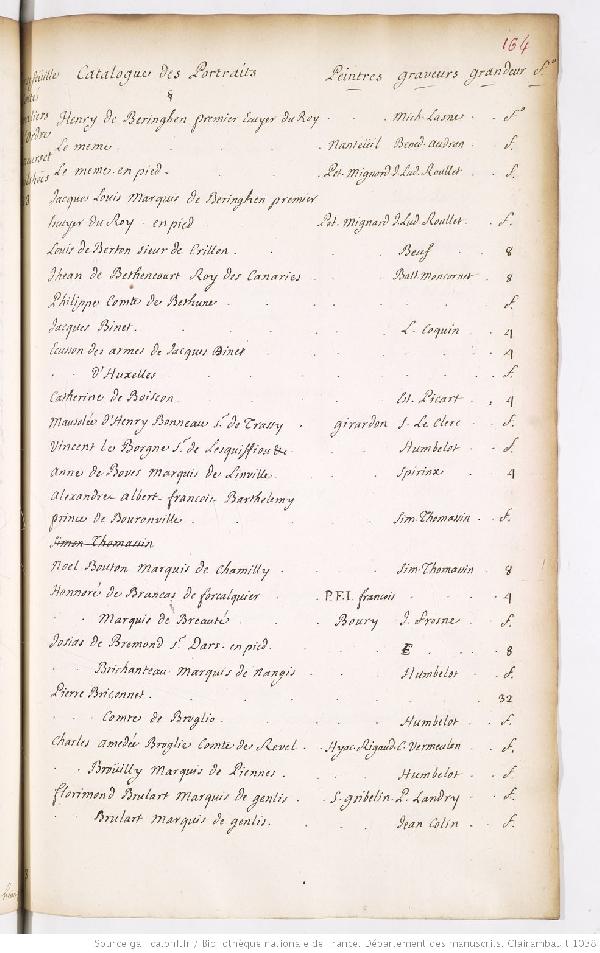 164
Catalogue des Portraits Peintres graveurs grandeur f.º
Henry de Beringhen premier Ecuyer du Roy Mich. Lasne f.º
Le meme Nanteüil Benoit Audran f.
Le meme en pied Pet. Mignard J. Lud. Roullet f.
Jacques Louis Marquis de Beringhen premier
Ecuyer du Roy en pied Pet. Mignard J. Lud. Roullet f.
Louis de Berton sieur de Crillon Beuf 8
Jhean de Bethencourt Roy des Canaries Balt. Moncornet 8
Philippe Comte de Bethune f.
Jacques Binet L. Coquin 4
Ecusson des armes de Jacques Binet 4
d'Huxelles f.
Catherine de Boiscon Et. Picart 4
Mausolée d'Henry Bonneau s.r de Trassy girardon S. Le Clerc f.
Vincent le Borgne s.r de Lesquiffiou &c Humbelot f.
Anne de Boves Marquis de Linville Spirinx 4
Alexandre Albert françois Barthelemy
prince de Bournonville Sim. Thomassin f.
Simon Thomassin
Noel Bouton Marquis de Chamilly Sim. Thomassin 8
Honnoré de Brancas de forcalquier P.E.L. françois 4
Marquis de Breauté Boury J. Frosne f.
Josias de Bremond s.r Dars en pied E 8
Brichanteau Marquis de Nangis Humbelot f.
Pierre Briconnet 32
Comte de Broglio Humbelot f.
Charles Amedée Broglie Comte de Revel Hyac. Rigaud C. Vermeulen f.
Broüilly Marquis de Piennes Humbelot f.
florimond Brulart Marquis de genlis S. gribelin P. Landry f.
Brulart Marquis de genlis Jean Colin f.
Source gallica.bnf.fr / Bibliothèque nationale de France. Département des manuscrits. Clairambault 1038